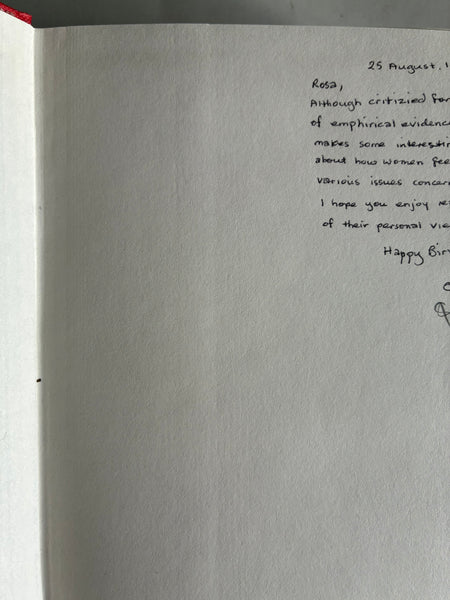 25 August, 1
Rosa,
Although critizied for
of emphirical evidenc
makes some interestin
about how women fee
various issues concer
I hope you enjoy
of their personal vie
Happy Bir